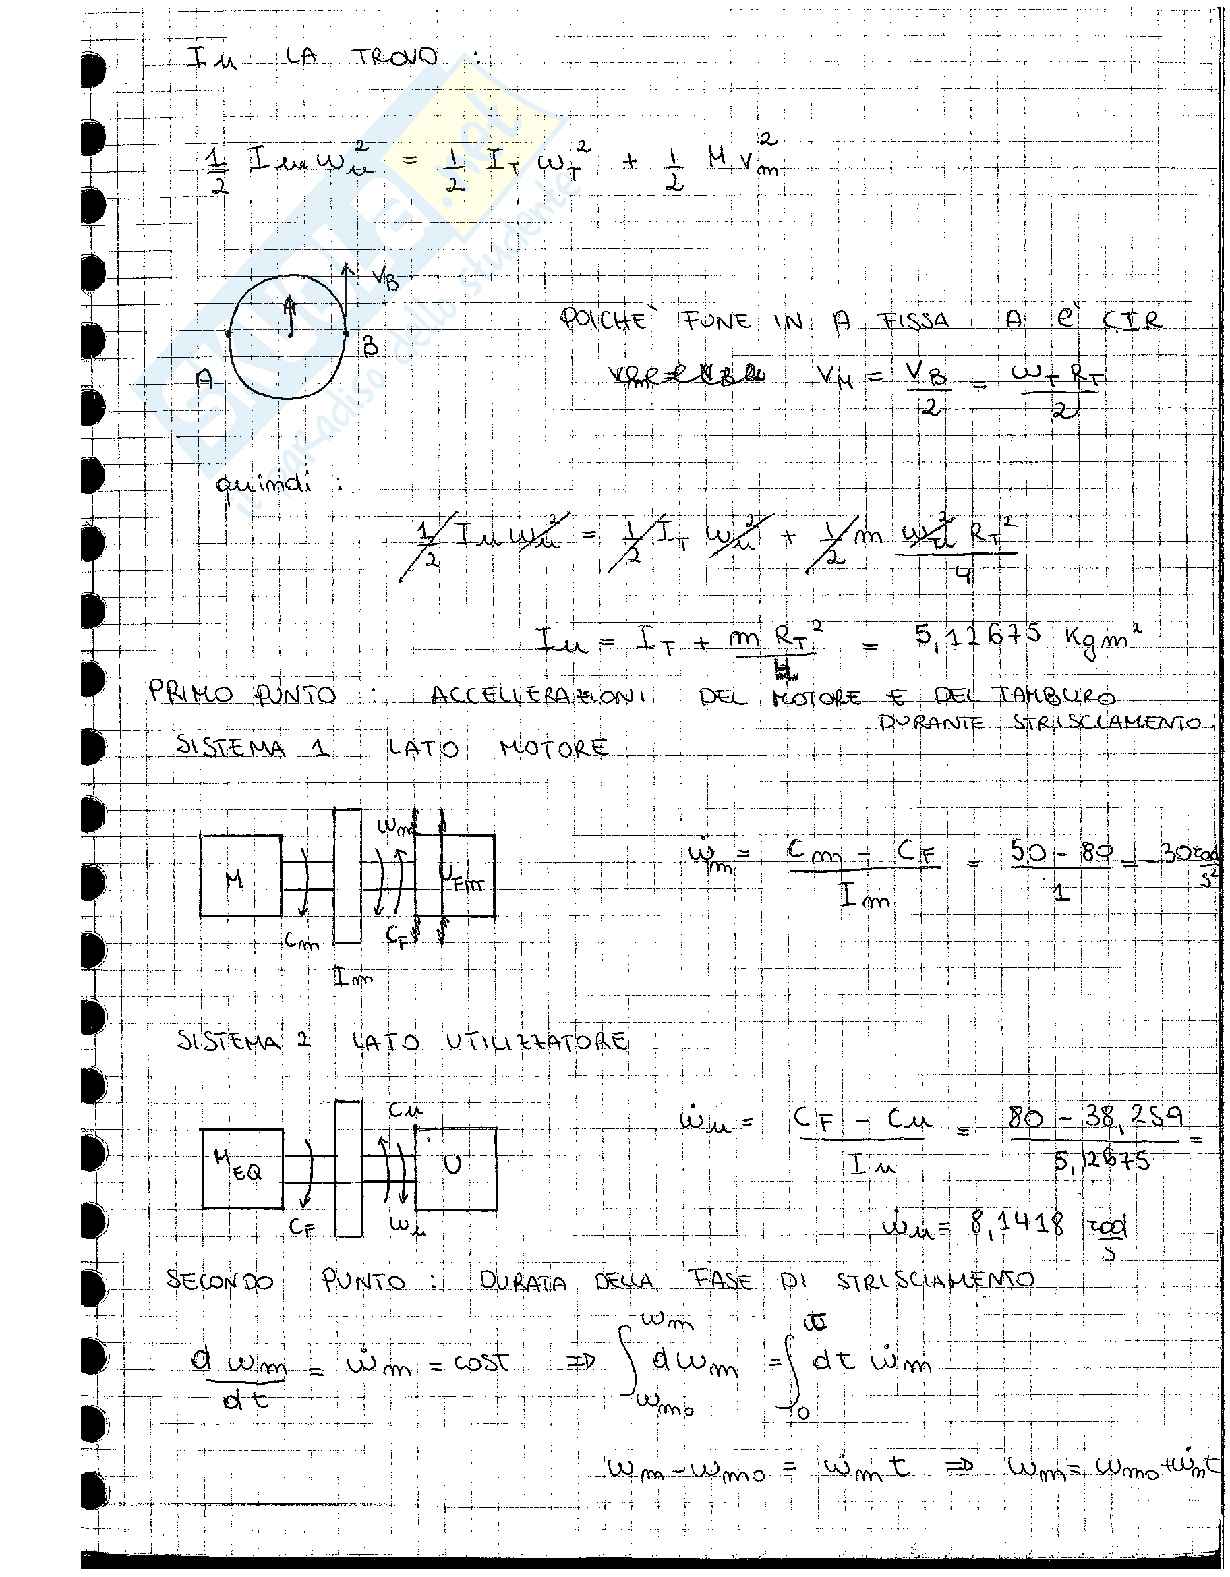 Iu LA TROVO :
1/2 Iu ωu² = 1/2 I_T ω_T² + 1/2 M v_m²
V_B
B
A
POICHÈ FUNE IN A FISSA A È CIR
V_M = V_B/2 = ω_T R_T/2
quindi :
1/2 Iu ωu² = 1/2 I_T ωu² + 1/2 m ωu² R_T²/4
Iu = I_T + m R_T²/4 = 5,12675 Kgm²
PRIMO PUNTO : ACCELLERAZIONI DEL MOTORE E DEL TAMBURO
DURANTE STRISCIAMENTO
SISTEMA 1 LATO MOTORE
ωm
M
Cm
C_F
Im
ω̇m = (Cm - C_F)/Im = (50 - 80)/1 = -30 rad/s²
SISTEMA 2 LATO UTILIZZATORE
Cu
M_EQ
U
C_F
ωu
ω̇u = (C_F - Cu)/Iu = (80 - 38,259)/5,12675 =
ω̇u = 8,1418 rad/s
SECONDO PUNTO : DURATA DELLA FASE DI STRISCIAMENTO
dωm/dt = ω̇m = cost ⇒ ∫_ωm0^ωm dωm = ∫_0^t dt ω̇m
ωm - ωm0 = ω̇m t ⇒ ωm = ωm0 + ω̇m t
SKUOLA.net
il paradiso dello studente